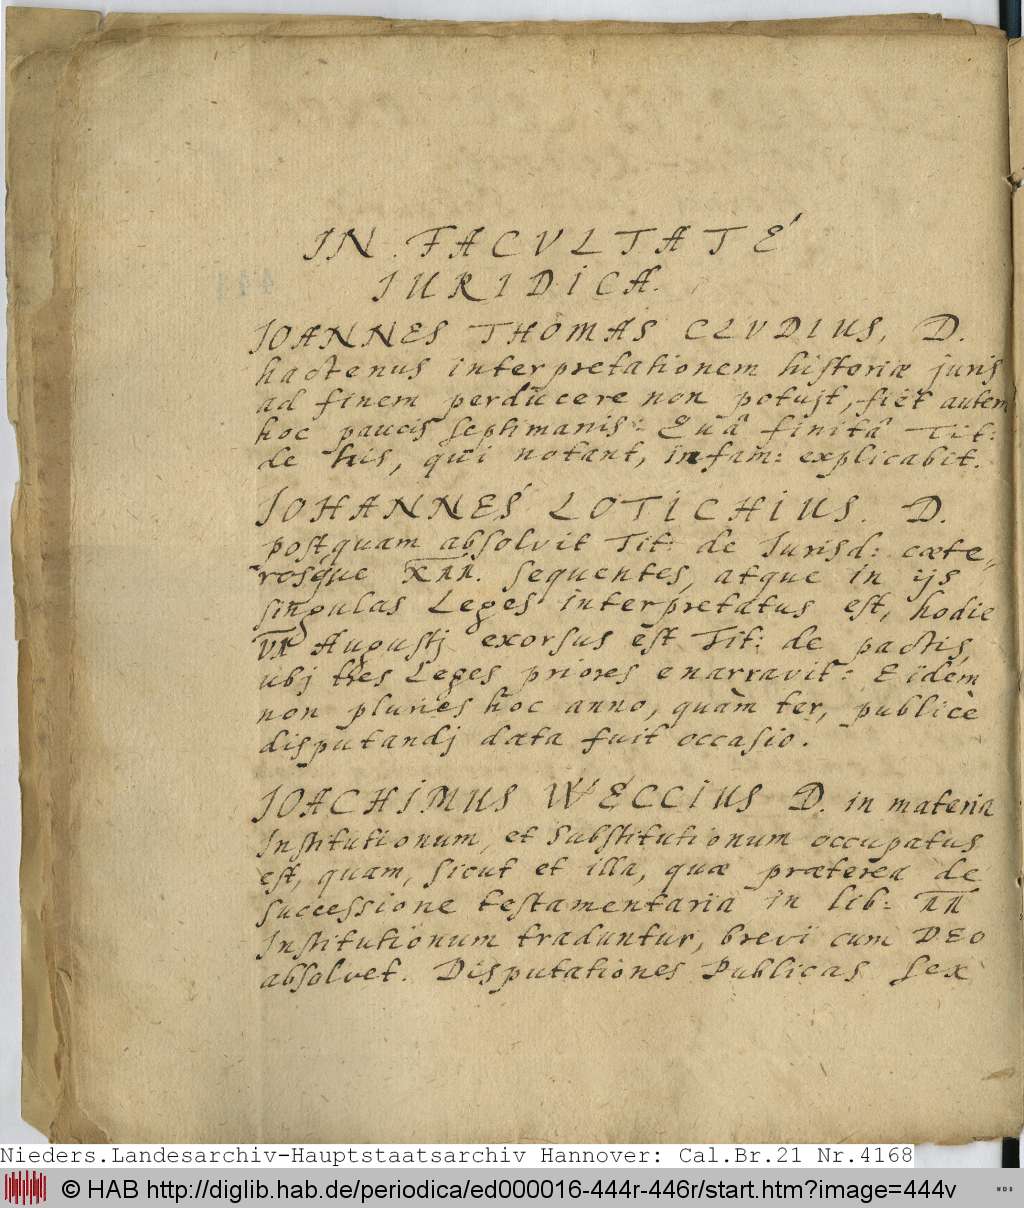 IN FACVLTATE
IURIDICA.
IOANNES THOMAS CLVDIUS, D.
hactenus interpretationem historiæ juris
ad finem perducere non potuit, fiet autem
hoc paucis septimanis: Quâ finitâ Tit:
de his, qui notant, infam: explicabit.
IOHANNES LOTICHIUS. D.
postquam absolvit Tit: de Iurisd: cæte-
rosque XIII. sequentes, atque in ijs
singulas Leges interpretatus est, hodie
VI Augustj exorsus est Tit: de pactis,
ubj tres Leges priores enarravit: Eidem
non pluries hoc anno, quàm ter, publicè
disputandj data fuit occasio.
IOACHIMUS WECCIUS D. in materia
Institutionum, et Substitutionum occupatus
est, quam, sicut et illa, quæ præterea de
successione testamentaria in lib: II
Institutionum traduntur, brevi cum DEO
absolvet. Disputationes Publicas sex
Nieders.Landesarchiv-Hauptstaatsarchiv Hannover: Cal.Br.21 Nr.4168
© HAB http://diglib.hab.de/periodica/ed000016-444r-446r/start.htm?image=444v